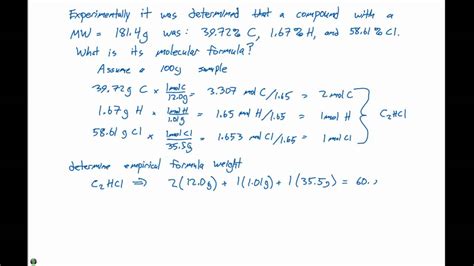 Experimentally it was determined that a compound with a
MW = 181.4g was: 39.72% C, 1.67% H, and 58.61% Cl.
What is its molecular formula?
Assume a 100g sample
39.72g C × 1 mol C / 12.0g = 3.307 mol C /1.65 = 2 mol C
1.67g H × 1 mol H / 1.01g = 1.65 mol H /1.65 = 1 mol H } C₂HCl
58.61g Cl × 1 mol Cl / 35.5g = 1.653 mol Cl /1.65 = 1 mol Cl
determine empirical formula weight
C₂HCl ⟹ 2(12.0g) + 1(1.01g) + 1(35.5g) = 60.